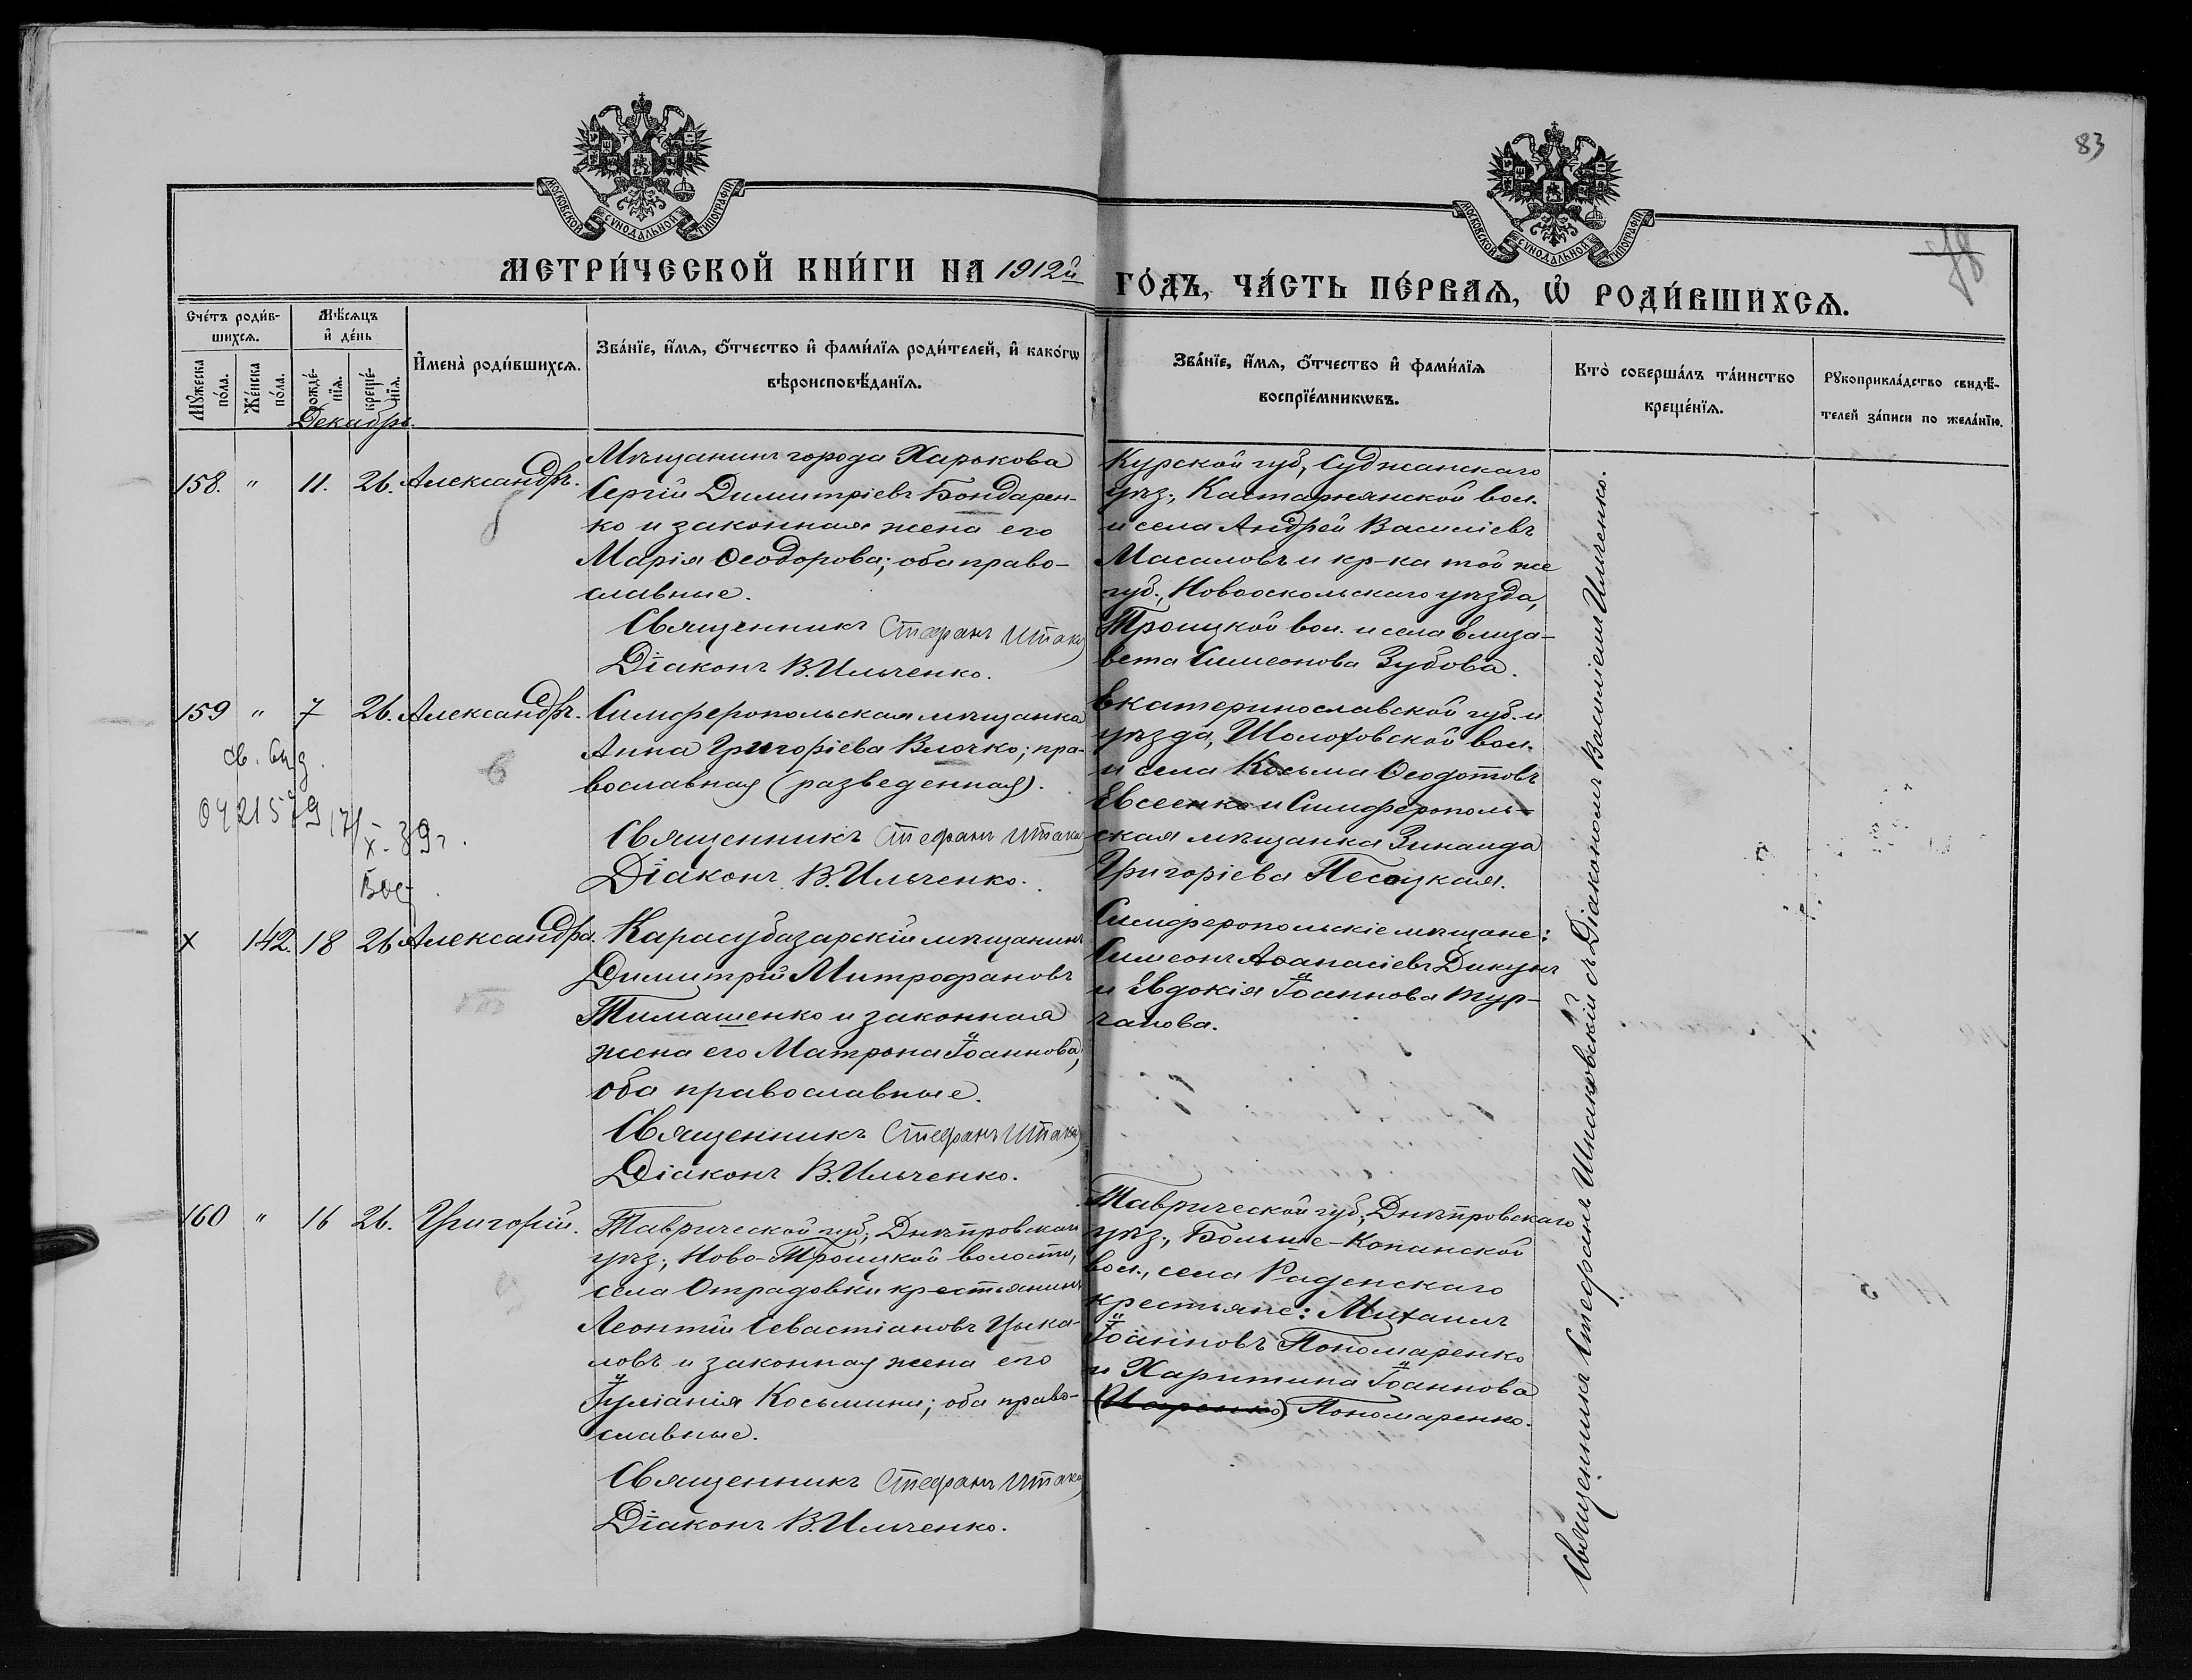 83
78
МОСКОВСКОЙ СѴНОДАЛЬНОЙ ТИПОГРАФІИ
МОСКОВСКОЙ СѴНОДАЛЬНОЙ ТИПОГРАФІИ
МЕТРИ́ЧЕСКОЙ КНИ́ГИ НА 1912й ГО́ДЪ, ЧА́СТЬ ПЕ́РВАѦ, Ѡ҆ РОДИ́ВШИХСѦ.
Сче́тъ роди́в-
шихсѧ.
Мꙋ́жеска
по́ла.
Же́нска
по́ла.
Мѣ́сѧцъ
и҆ де́нь
рожде́-
нїѧ.
креще́-
нїѧ.
И҆мена̀ роди́вшихсѧ.
Зва́нїе, и҆́мѧ, ѻ҆́тчество и҆ фами́лїѧ роди́телей, и҆ како́гѡ
вѣроисповѣ́данїѧ.
Зва́нїе, и҆́мѧ, ѻ҆́тчество и҆ фами́лїѧ
воспрїе́мникѡвъ.
Кто̀ соверша́лъ та́инство
креще́нїѧ.
Рꙋкоприкла́дство свидѣ́-
телей за́писи по жела́нїю.
Декабрь.
158. " 11. 26. Александръ.
Мѣщанинъ города Харькова
Сергій Димитріевъ Бондарен-
ко и законная жена его
Марія Ѳеодорова; оба право-
славные.
Священникъ Стефанъ Шпаков
Діаконъ В. Ильченко.
Курской губ., Суджанскаго
уѣз., Касторнянской вол.
и села Андрей Василіевъ
Масаловъ и кр-ка той же
губ., Новооскольскаго уѣзда,
Троицкой вол. и села Елиза-
вета Симеонова Зубова.
159 " 7 26. Александръ.
св. выд.
0421579 17/X-39г.
Симферопольская мѣщанка
Анна Григоріева Влочко; пра-
вославная (разведенная).
Священникъ Стефанъ Шпаков
Діаконъ В. Ильченко.
Екатеринославской губ. и
уѣзда, Шолоховской вол.
и села Косьма Ѳеодотовъ
Евсеенко и Симферополь-
ская мѣщанка Зинаида
Григоріева Песоцкая.
х 142. 18 26 Александра.
Карасубазарскій мѣщанинъ
Димитрій Митрофановъ
Тимашенко и законная
жена его Матрона Іоаннова,
оба православные.
Священникъ Стефанъ Шпаков
Діаконъ В. Ильченко.
Симферопольскіе мѣщане:
Симеонъ Аѳанасіевъ Дикунъ
и Евдокія Іоаннова Тур-
чапова.
160 " 16 26. Григорій.
Таврической губ., Днѣпровскаго
уѣз., Ново-Троицкой волости,
села Отрадовки крестьянинъ
Леонтій Севастіановъ Цыка-
ловъ и законная жена его
Іуліанія Косьмина; оба право-
славные.
Священникъ Стефанъ Шпаков
Діаконъ В. Ильченко.
Таврической губ., Днѣпровскаго
уѣз., Больше-Копанской
вол., села Раденскаго
крестьяне: Михаилъ
Іоанновъ Пономаренко
и Харитина Іоаннова
Пономаренко.
Священникъ Стефанъ Шпаковскій съ Діакономъ Василіемъ Ильченко.